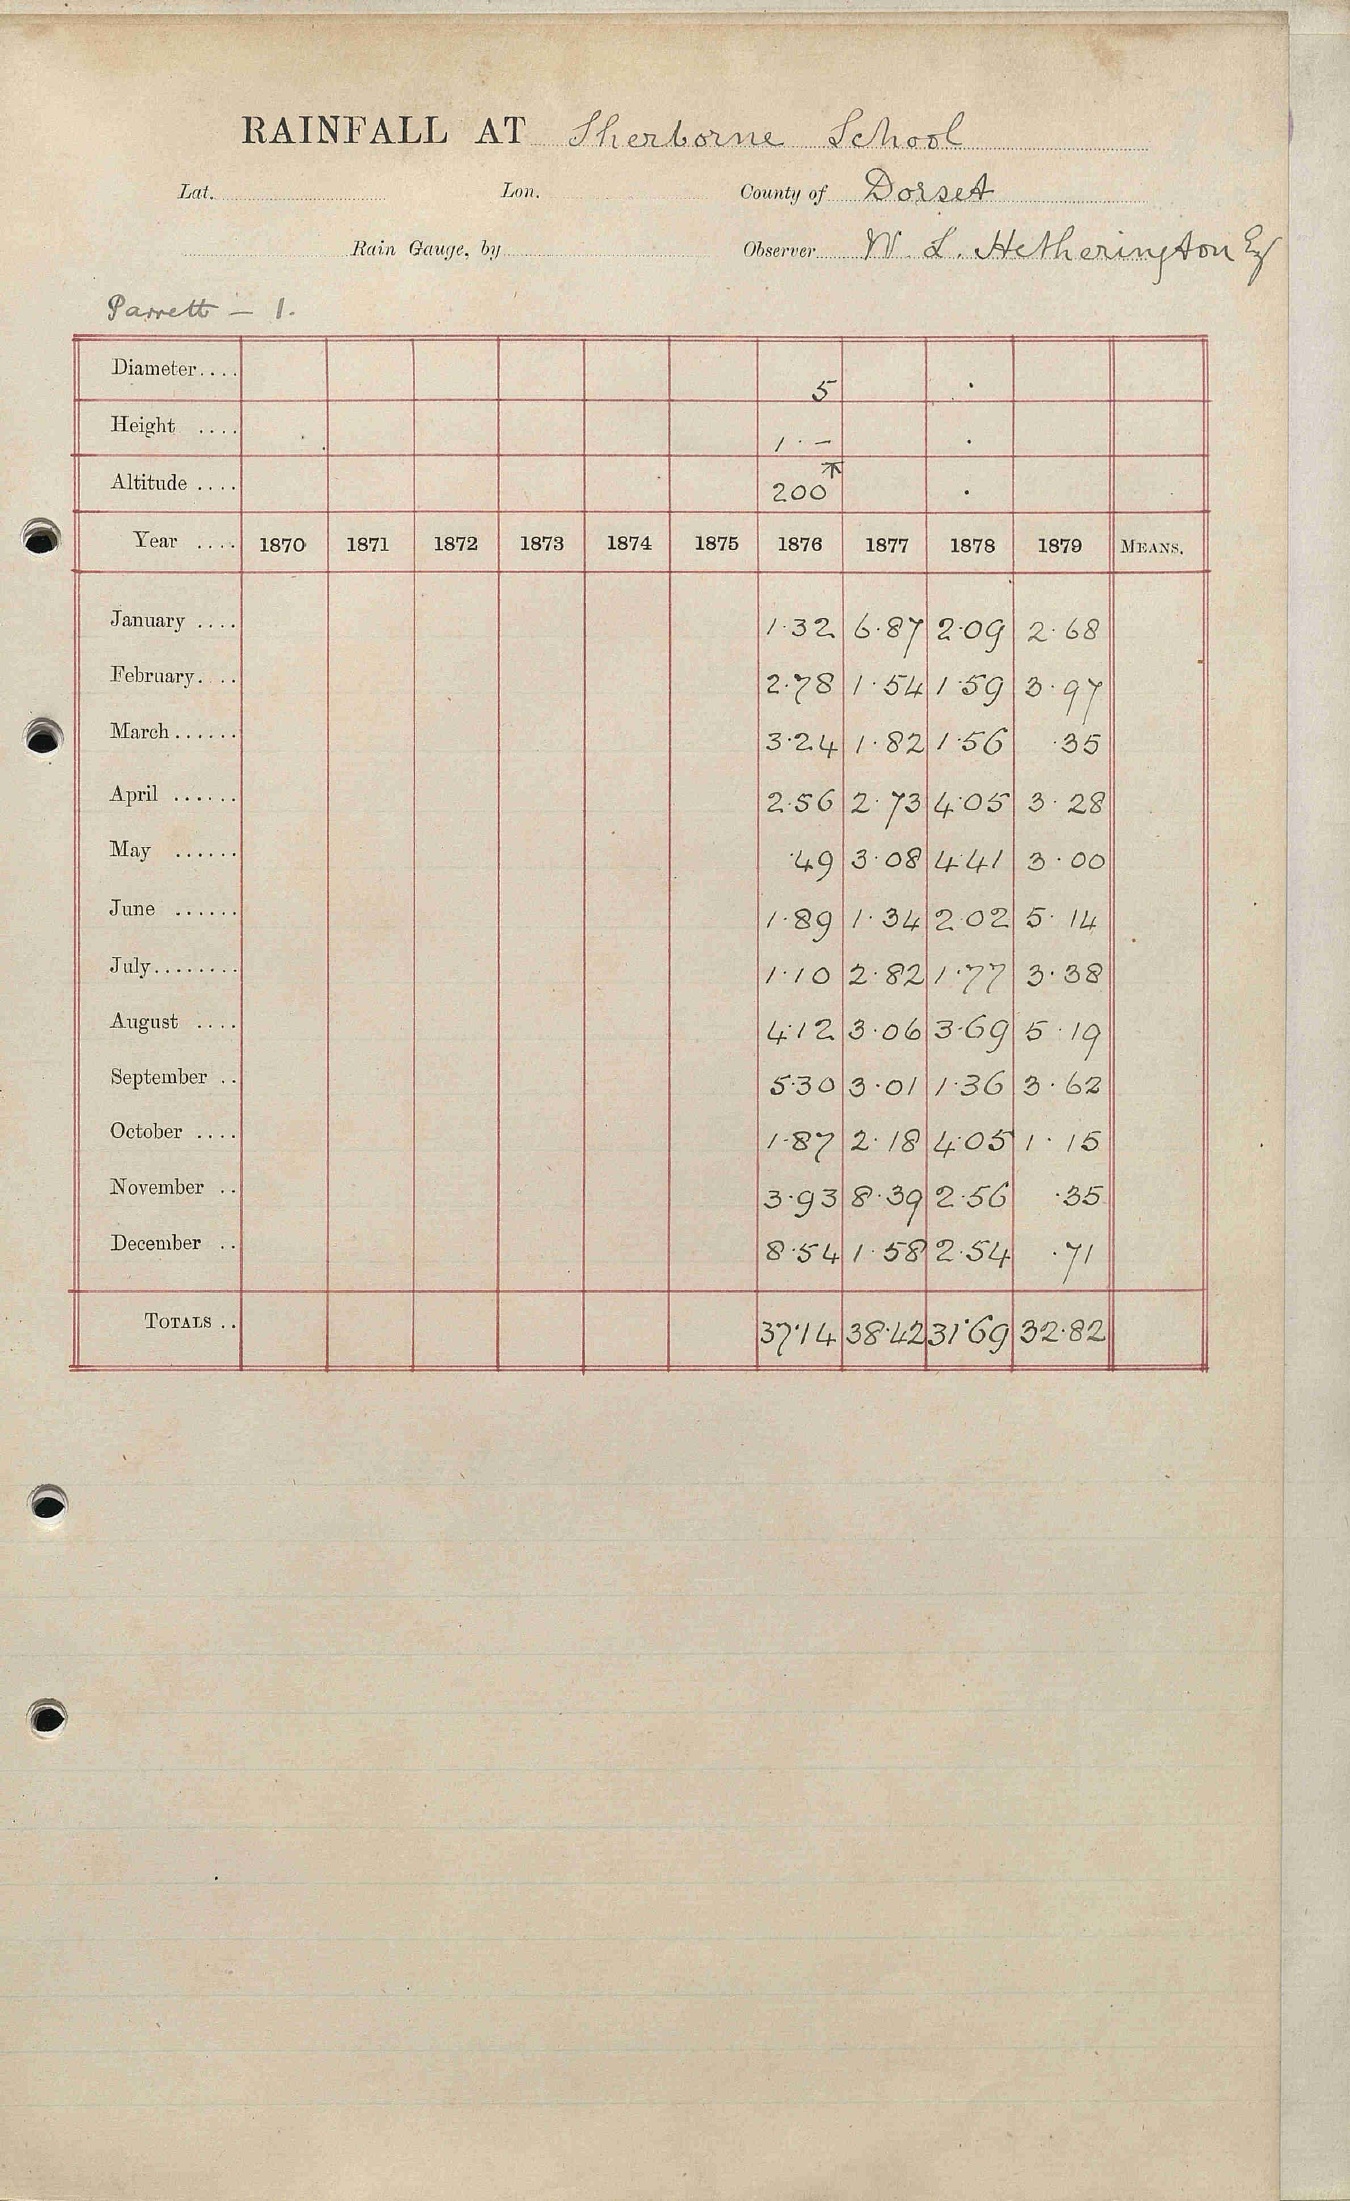 RAINFALL AT Sherborne School
Lat. Lon. County of Dorset
Rain Gauge, by Observer W. L. Hetherington Esq
Parrett — 1.
Diameter.... 5 .
Height .... 1 . — .
Altitude .... 200 .
Year .... 1870 1871 1872 1873 1874 1875 1876 1877 1878 1879 MEANS.
January .... 1.32 6.87 2.09 2.68
February. .. 2.78 1.54 1.59 3.97
March ...... 3.24 1.82 1.56 .35
April ...... 2.56 2.73 4.05 3.28
May ...... .49 3.08 4.41 3.00
June ...... 1.89 1.34 2.02 5.14
July........ 1.10 2.82 1.77 3.38
August .... 4.12 3.06 3.69 5.19
September .. 5.30 3.01 1.36 3.62
October .... 1.87 2.18 4.05 1.15
November .. 3.93 8.39 2.56 .35
December .. 8.54 1.58 2.54 .71
TOTALS .. 37.14 38.42 31.69 32.82